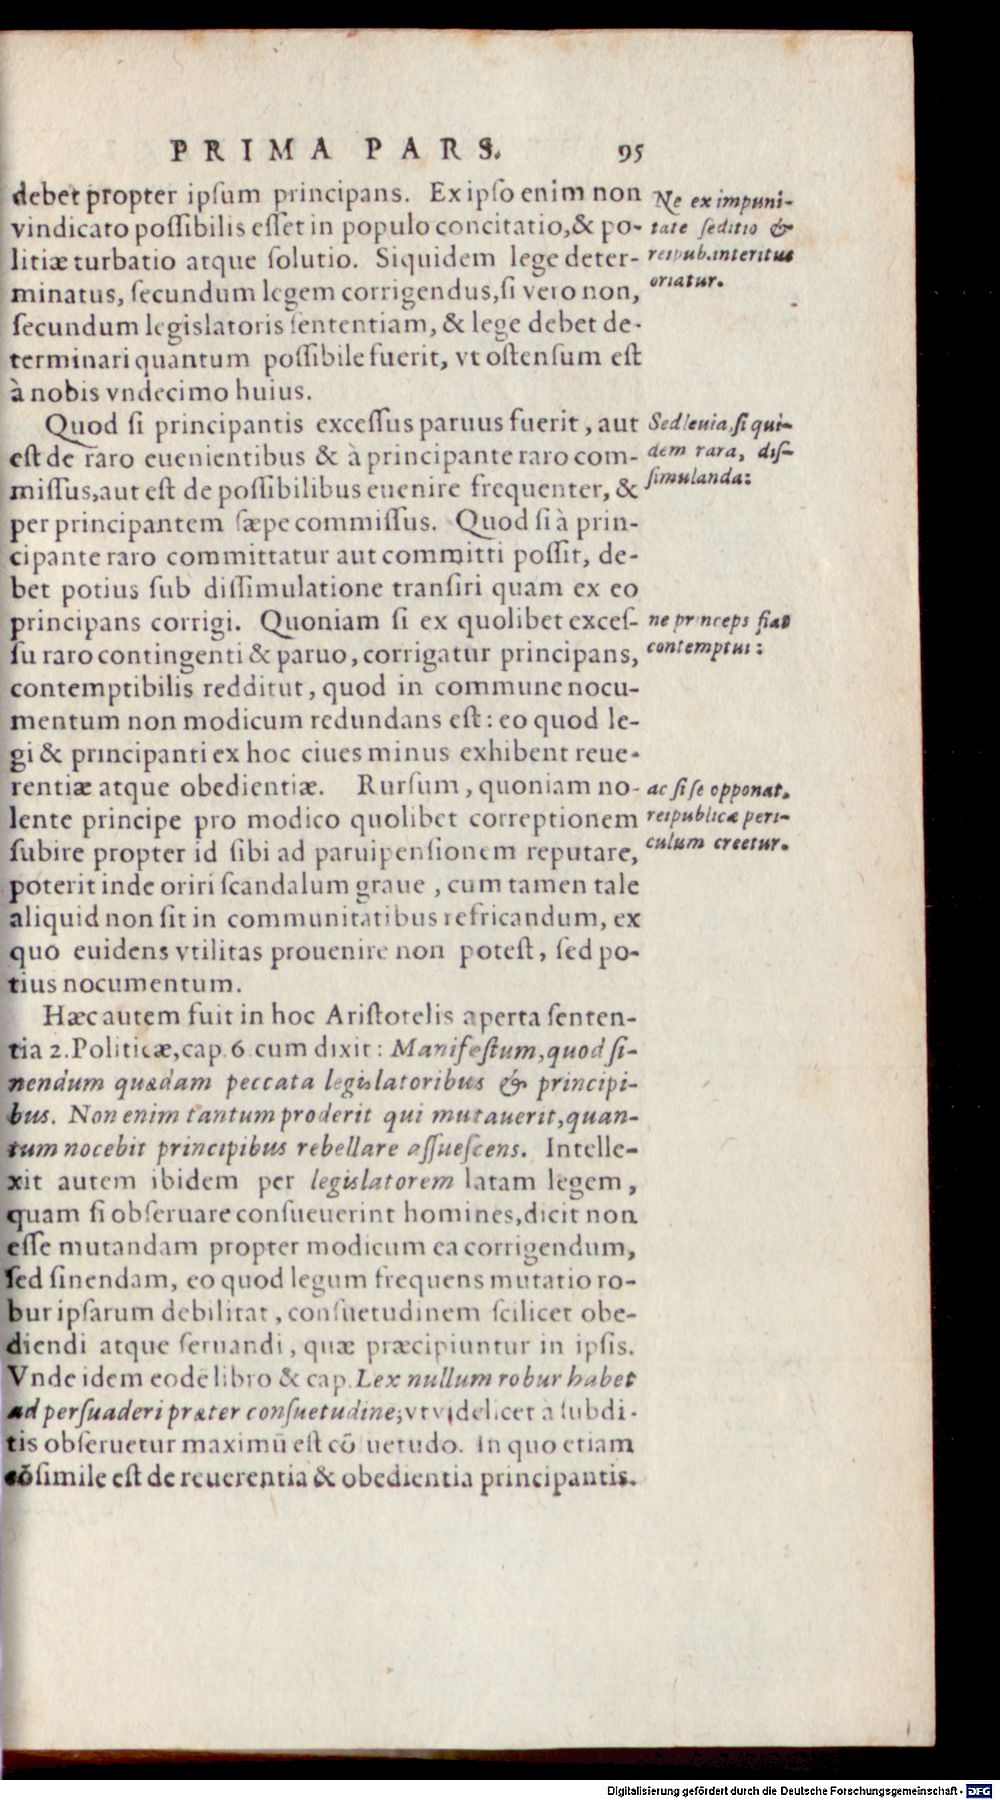 PRIMA PARS. 95
debet propter ipsum principans. Ex ipso enim non
vindicato possibilis esset in populo concitatio, & po-
litiæ turbatio atque solutio. Siquidem lege deter-
minatus, secundum legem corrigendus, si vero non,
secundum legislatoris sententiam, & lege debet de-
terminari quantum possibile fuerit, vt ostensum est
à nobis vndecimo huius.
Ne ex impuni-
tate seditio &
reipub. interitus
oriatur.
Quod si principantis excessus paruus fuerit, aut
est de raro euenientibus & à principante raro com-
missus, aut est de possibilibus euenire frequenter, &
per principantem sæpe commissus. Quod si à prin-
cipante raro committatur aut committi possit, de-
bet potius sub dissimulatione transiri quam ex eo
principans corrigi. Quoniam si ex quolibet exces-
su raro contingenti & paruo, corrigatur principans,
contemptibilis redditut, quod in commune nocu-
mentum non modicum redundans est: eo quod le-
gi & principanti ex hoc ciues minus exhibent reue-
rentiæ atque obedientiæ. Rursum, quoniam no-
lente principe pro modico quolibet correptionem
subire propter id sibi ad paruipensionem reputare,
poterit inde oriri scandalum graue, cum tamen tale
aliquid non sit in communitatibus refricandum, ex
quo euidens vtilitas prouenire non potest, sed po-
tius nocumentum.
Sed leuia, si qui-
dem rara, dis-
simulanda:
ne princeps fiat
contemptui:
ac si se opponat,
reipublicæ peri-
culum creetur.
Hæc autem fuit in hoc Aristotelis aperta senten-
tia 2. Politicæ, cap. 6. cum dixit: Manifestum, quod si-
nendum quædam peccata legislatoribus & principi-
bus. Non enim tantum proderit qui mutauerit, quan-
tum nocebit principibus rebellare assuescens. Intelle-
xit autem ibidem per legislatorem latam legem,
quam si obseruare consueuerint homines, dicit non
esse mutandam propter modicum ea corrigendum,
sed sinendam, eo quod legum frequens mutatio ro-
bur ipsarum debilitat, consuetudinem scilicet obe-
diendi atque seruandi, quæ præcipiuntur in ipsis.
Vnde idem eodē libro & cap. Lex nullum robur habet
ad persuaderi præter consuetudinē; vt videlicet a subdi-
tis obseruetur maximū est cō uetudo. In quo etiam
cōsimile est de reuerentia & obedientia principantis.
Digitalisierung gefördert durch die Deutsche Forschungsgemeinschaft - DFG